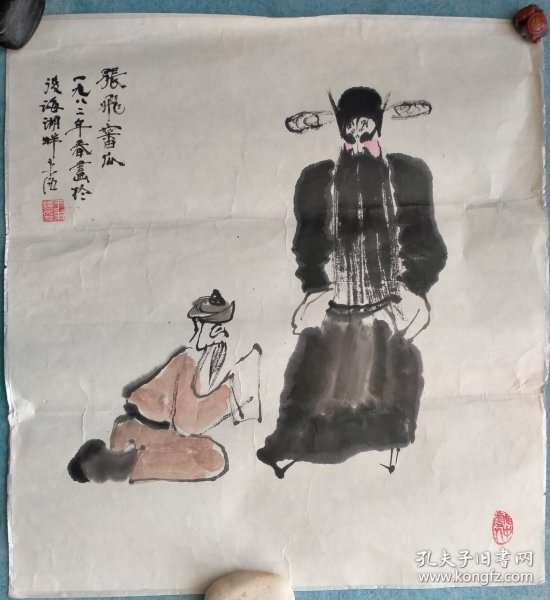 張飛審瓜
一九八二年春畫於
後海湖畔
孔夫子旧书网
www.kongfz.com